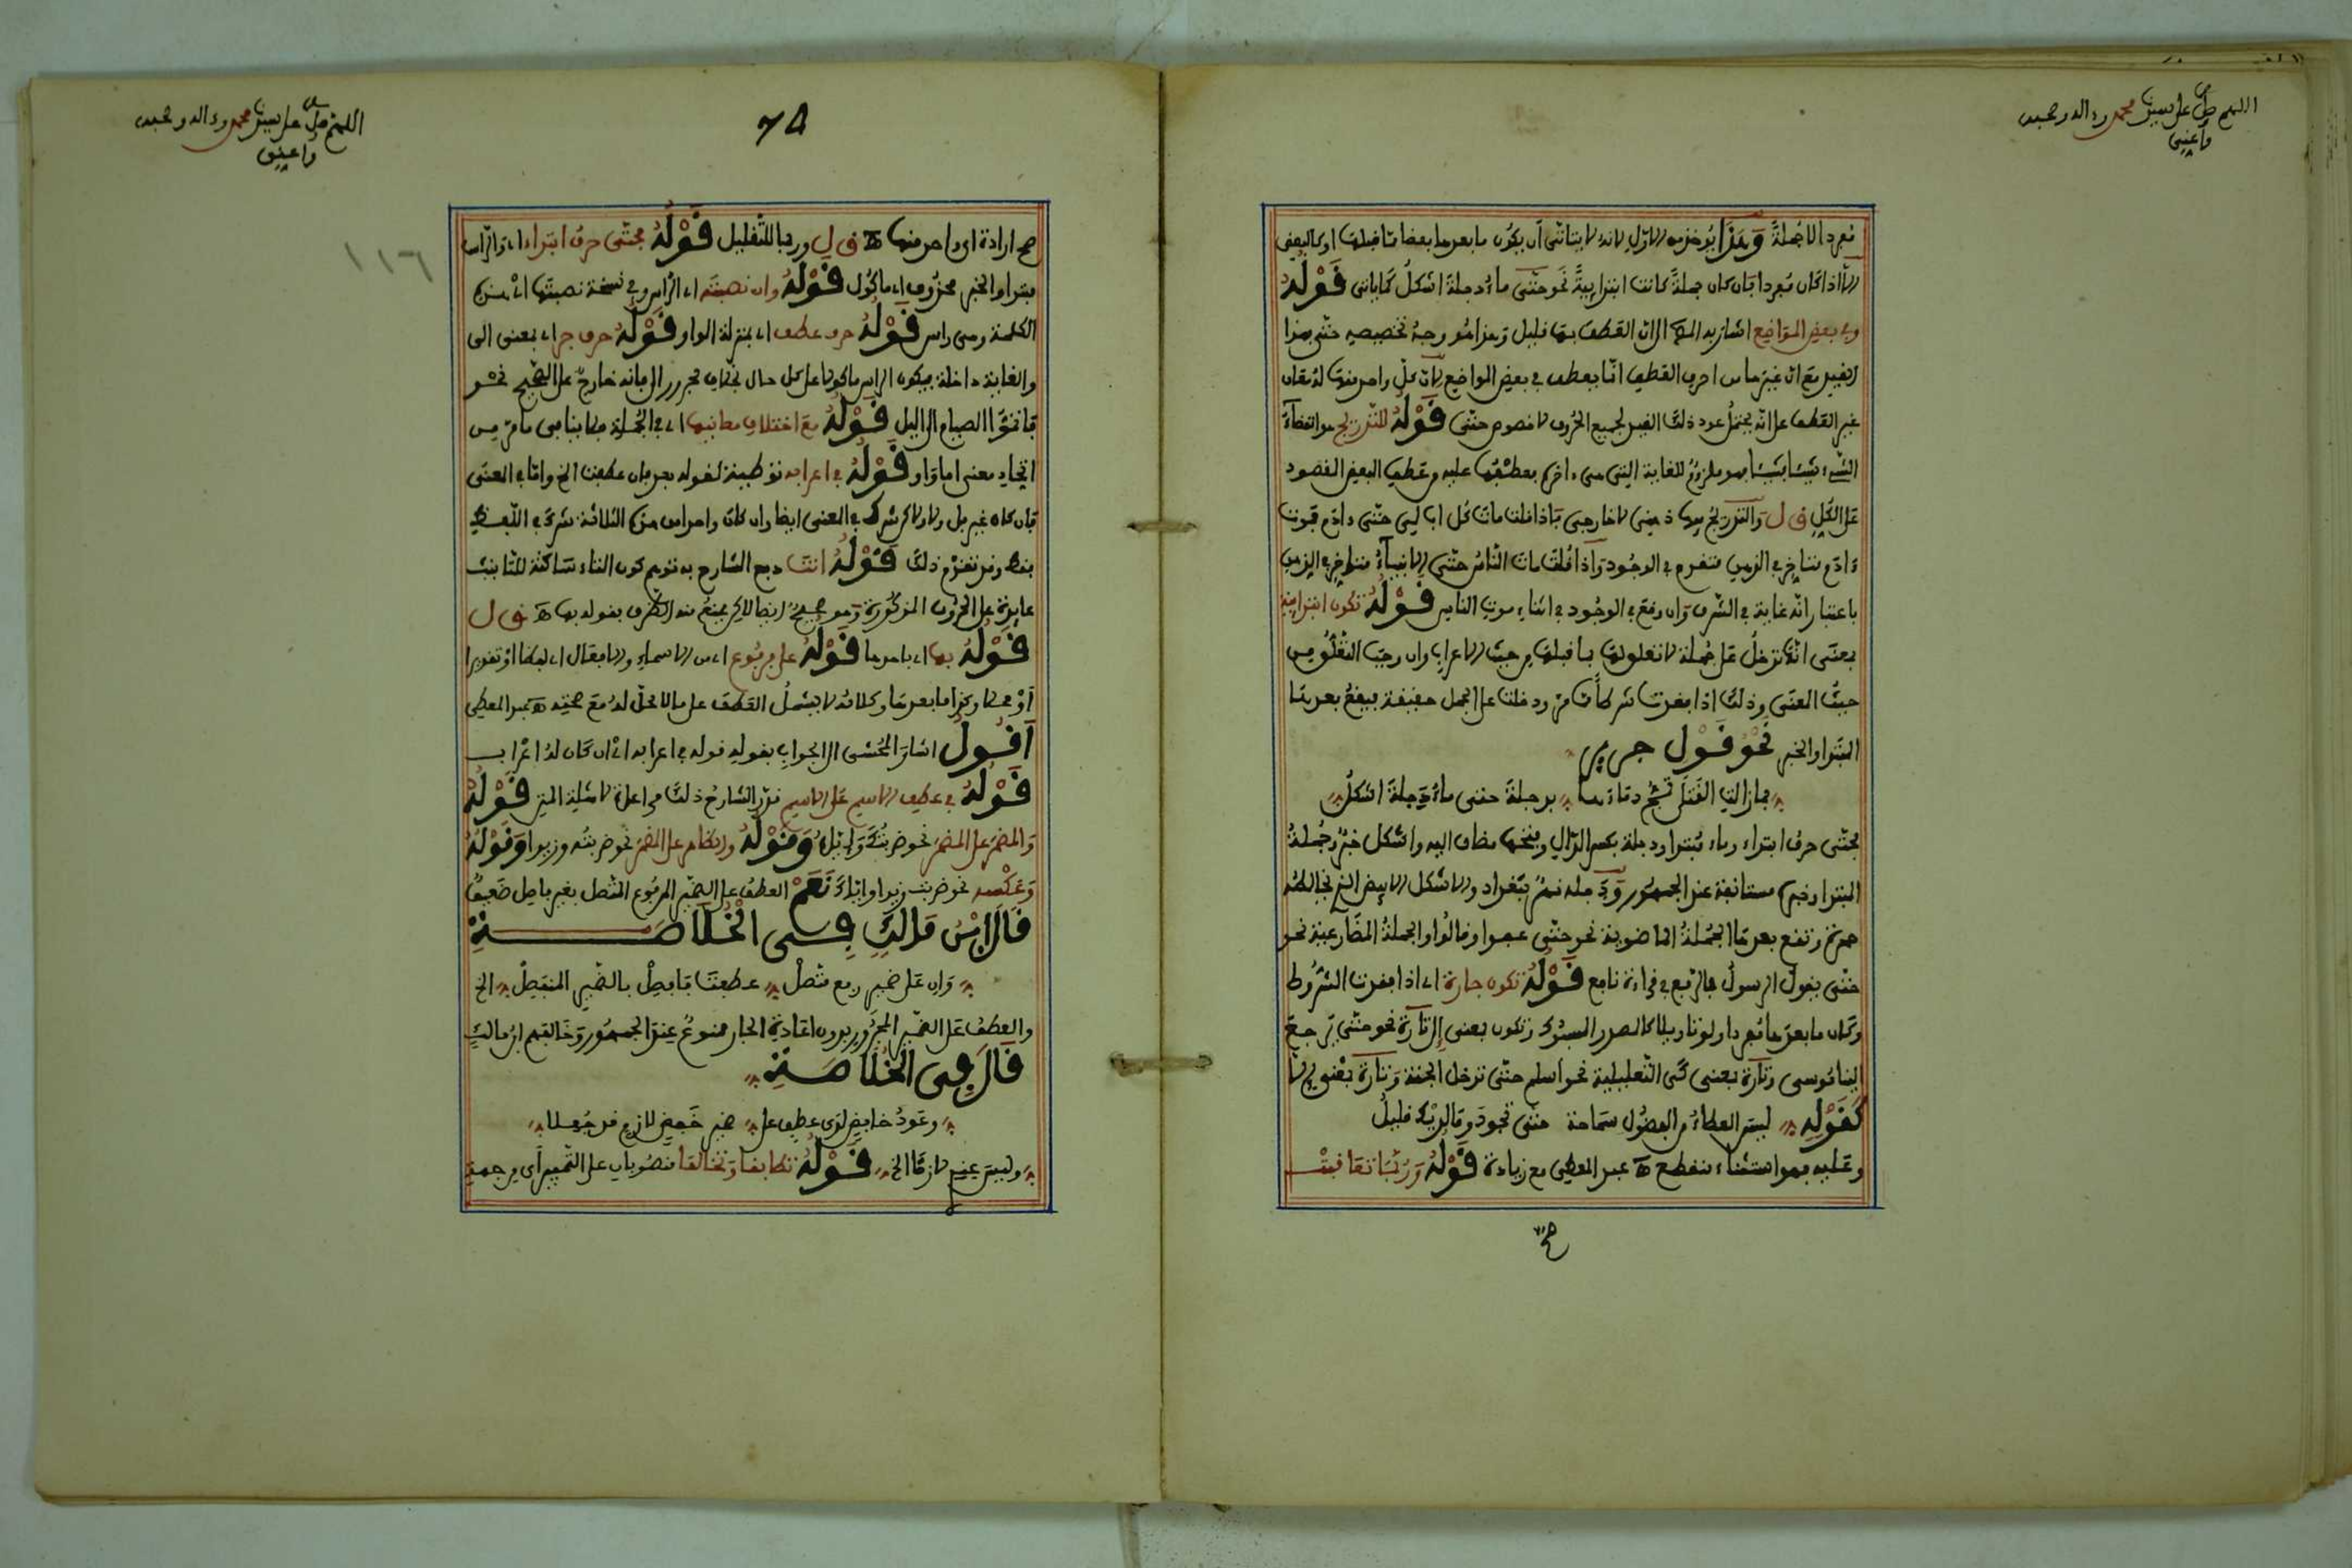 اللهم صل على سيدنا محمد وءاله وصحبه
وأعني
مفردا لا جملةً وهذا يؤخذ من الاول لانه لا يتاتى أن يكون ما بعدها بعضا مما قبلها او كالبعض
الا اذا كان مفردا بان كان جملةً كانت ابتدائيةً نحو حتى ماءُ دجلةَ اشكلُ كما ياتي قوله
وفي بعض المواضع اشار به الى ان العطف بها قليل وهذا هو وجه تخصيصه حتى بهذا
القيد مع ان غيرها من احرف العطف انما يعطف في بعض المواضع لان كل واحد منها له معان
غير العطف على انه يحتمل عود ذلك القيد لجميع الحروف لا خصوص حتى قوله للتدريج هو انقضاء
الشيء شيئا شيئا وهو ملزوم للغاية التي هي ءاخر بعطفها عليه وعطف البعض المقصود
على الكل ق ل والتدريج بها ذهني لا خارجي فاذا قلت مات كل اب لي حتى ءادم فموت
ءادم متاخر في الذهن متقدم في الوجود واذا قلت مات الناس حتى الانبياء متاخر في الذهن
باعتبار انه غاية في الشرف وان وقع في الوجود في اثناء موت الناس قوله تكون ابتدائية
بمعنى انها تدخل على جملة لا تعلق لها بما قبلها من حيث الاعراب وان وجب التعلق من
حيث المعنى وذلك اذا فقدت شرطا مما مر ودخلت على الجمل حقيقة فيقع بعدها
المبتدا والخبر نحو قول جرير
فما زالت القتلى تمج دماءها بدجلة حتى ماءُ دجلةَ اشكلُ
فحتى حرف ابتداء وماء مبتدا ودجلة بكسر الدال وفتحها مضاف اليه واشكل خبر وجملة
المبتدا وخبره مستانفة عند الجمهور ودجلة نهر بغداد والاشكل الابيض الذي يخالطه
حمرة وتقع بعدها الجملة الماضوية نحو حتى عفوا وقالوا والجملة المضارعية نحو
حتى يقول الرسول بالرفع في قراءة نافع قوله تكون جارة اي اذا فقدت الشروط
وكان ما بعدها مفردا ولو تاويلا كالمصدر المسبوك وتكون بمعنى إلى تارة نحو حتى يرجع
الينا موسى وتارة بمعنى كي التعليلية نحو أسلم حتى تدخل الجنة وتارة بمعنى إلا
كقوله ليس العطاء من الفضول سماحة حتى تجود وما لديك قليل
وعليه فهو استثناء منقطع اه عبد المعطي مع زيادة قوله وربما تعاقبت
صح
اللهم صل على سيدنا محمد وءاله وصحبه
وأعني
١١٦
صح ارادة اي واحد منها اه ق ل وربما للتقليل قوله فحتى حرف ابتداء اي والراس
مبتدا والخبر محذوف اي ماكول قوله وان نصبته اي الراس وفي نسخة نصبتها اي هذه
الكلمة وهي راس قوله حرف عطف اي بمنزلة الواو قوله حرف جر اي بمعنى الى
والغاية داخلة فيكون الراس ماكولا على كل حال بخلاف مجرور الى فانه خارج على الصحيح نحو
ثم اتموا الصيام الى اليل قوله مع اختلاف معانيها اي في الجملة فلا ينافي ما مر من
اتحاد معنى اما واو قوله في اعرابه توطئة لقوله بعد فان عطفت الخ واما في المعنى
فان كان غير بل ولا ولكن شرك في المعنى ايضا وان كان واحدا من هذه الثلاثة شرك في اللفظ
فقط وقد تقدم ذلك قوله انت دفع الشارح به توهم كون التاء ساكنة للتانيث
عايدة على الحروف المذكورة وهو صحيح ايضا لاكن يمنع منه الظرف بقوله بها اه ق ل
قوله بها اي باحدها قوله على مرفوع اي من الاسماء والافعال اي لفظا او تقديرا
أو محلا وكذا ما بعدها وكلامه لا يشمل العطف على ما لا محل له مع صحته اه عبد المعطي
أقول اشار المحشى الى الجواب بقوله قوله في اعرابه اي ان كان له اعراب
قوله في عطف الاسم على الاسم قدر الشارح ذلك مراعاة لامثلة المتن قوله
والمضمر على المضمر نحو ضربتك وإياه وقوله والظاهر على المضمر نحو ضربته وزيدا وقوله
وعكسه نحو ضربت زيدا واياك نعم العطف على الضمير المرفوع المتصل بغير فاصل ضعيف
قال ابن مالك في الخلاصة
وان على ضمير رفع متصل عطفت فافصل بالضمير المنفصل الخ
والعطف على الضمير المجرور بدون اعادة الجار ممنوع عند الجمهور وخالفهم ابن مالك
قال في الخلاصة
وعود خافض لدى عطف على ضمير خفض لازم قد جعلا
وليس عندي لازما الخ قوله تطابقا وتخالفا منصوبان على التمييز أي من جهة